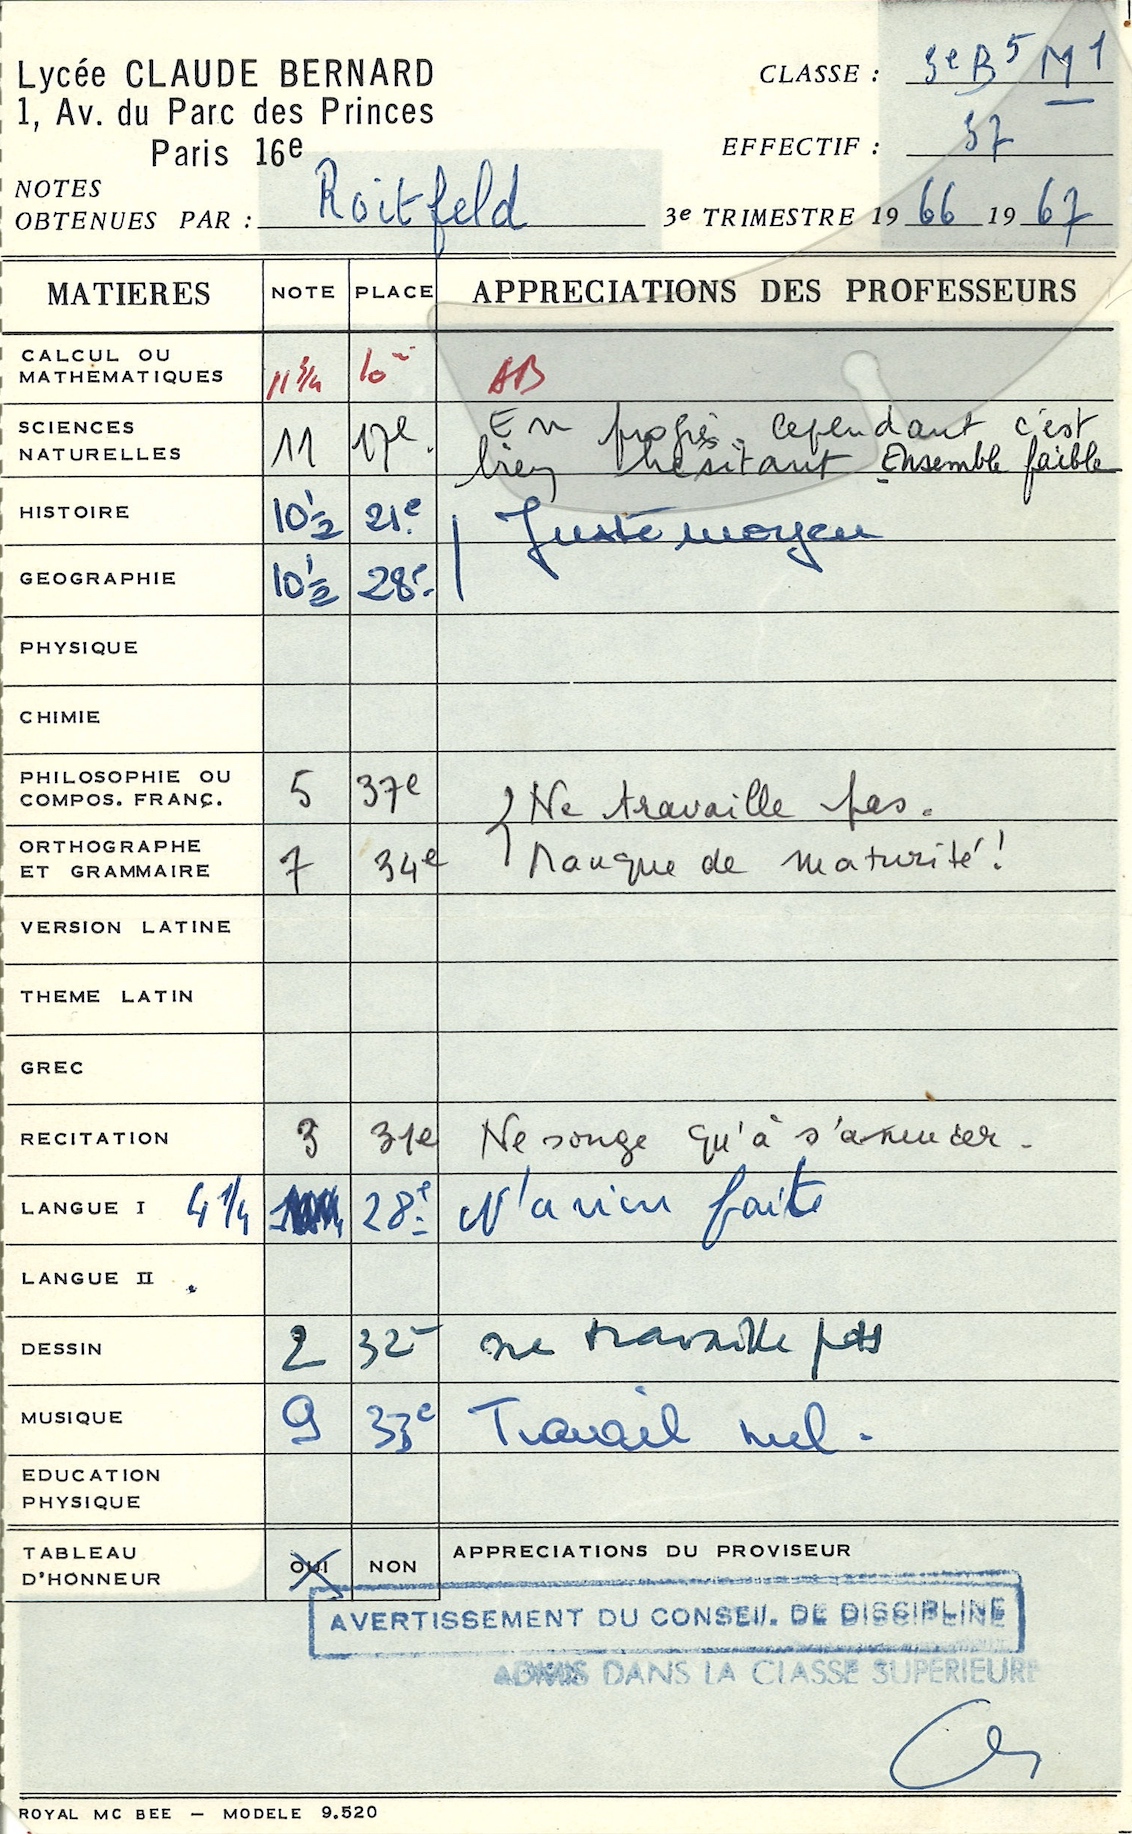 Lycée CLAUDE BERNARD
1, Av. du Parc des Princes
Paris 16e
CLASSE : 3e B5 M1
EFFECTIF : 37
NOTES
OBTENUES PAR : Roitfeld 3e TRIMESTRE 1966 1967
MATIERES NOTE PLACE APPRECIATIONS DES PROFESSEURS
CALCUL OU
MATHEMATIQUES 11 3/4 10e AB
SCIENCES
NATURELLES 11 17e. En progrès, cependant c'est
bien hésitant Ensemble faible
HISTOIRE 10 1/2 21e Juste moyen
GEOGRAPHIE 10 1/2 28e
PHYSIQUE
CHIMIE
PHILOSOPHIE OU
COMPOS. FRANÇ. 5 37e Ne travaille pas.
ORTHOGRAPHE
ET GRAMMAIRE 7 34e Manque de maturité !
VERSION LATINE
THEME LATIN
GREC
RECITATION 3 31e Ne songe qu'à s'amuser.
LANGUE I 4 1/4 28e N'a rien faite
LANGUE II
DESSIN 2 32e ne travaille pas
MUSIQUE 9 33e Travail nul.
EDUCATION
PHYSIQUE
TABLEAU
D'HONNEUR OUI NON APPRECIATIONS DU PROVISEUR
AVERTISSEMENT DU CONSEIL DE DISCIPLINE
ADMIS DANS LA CLASSE SUPERIEURE
ROYAL MC BEE — MODELE 9.520